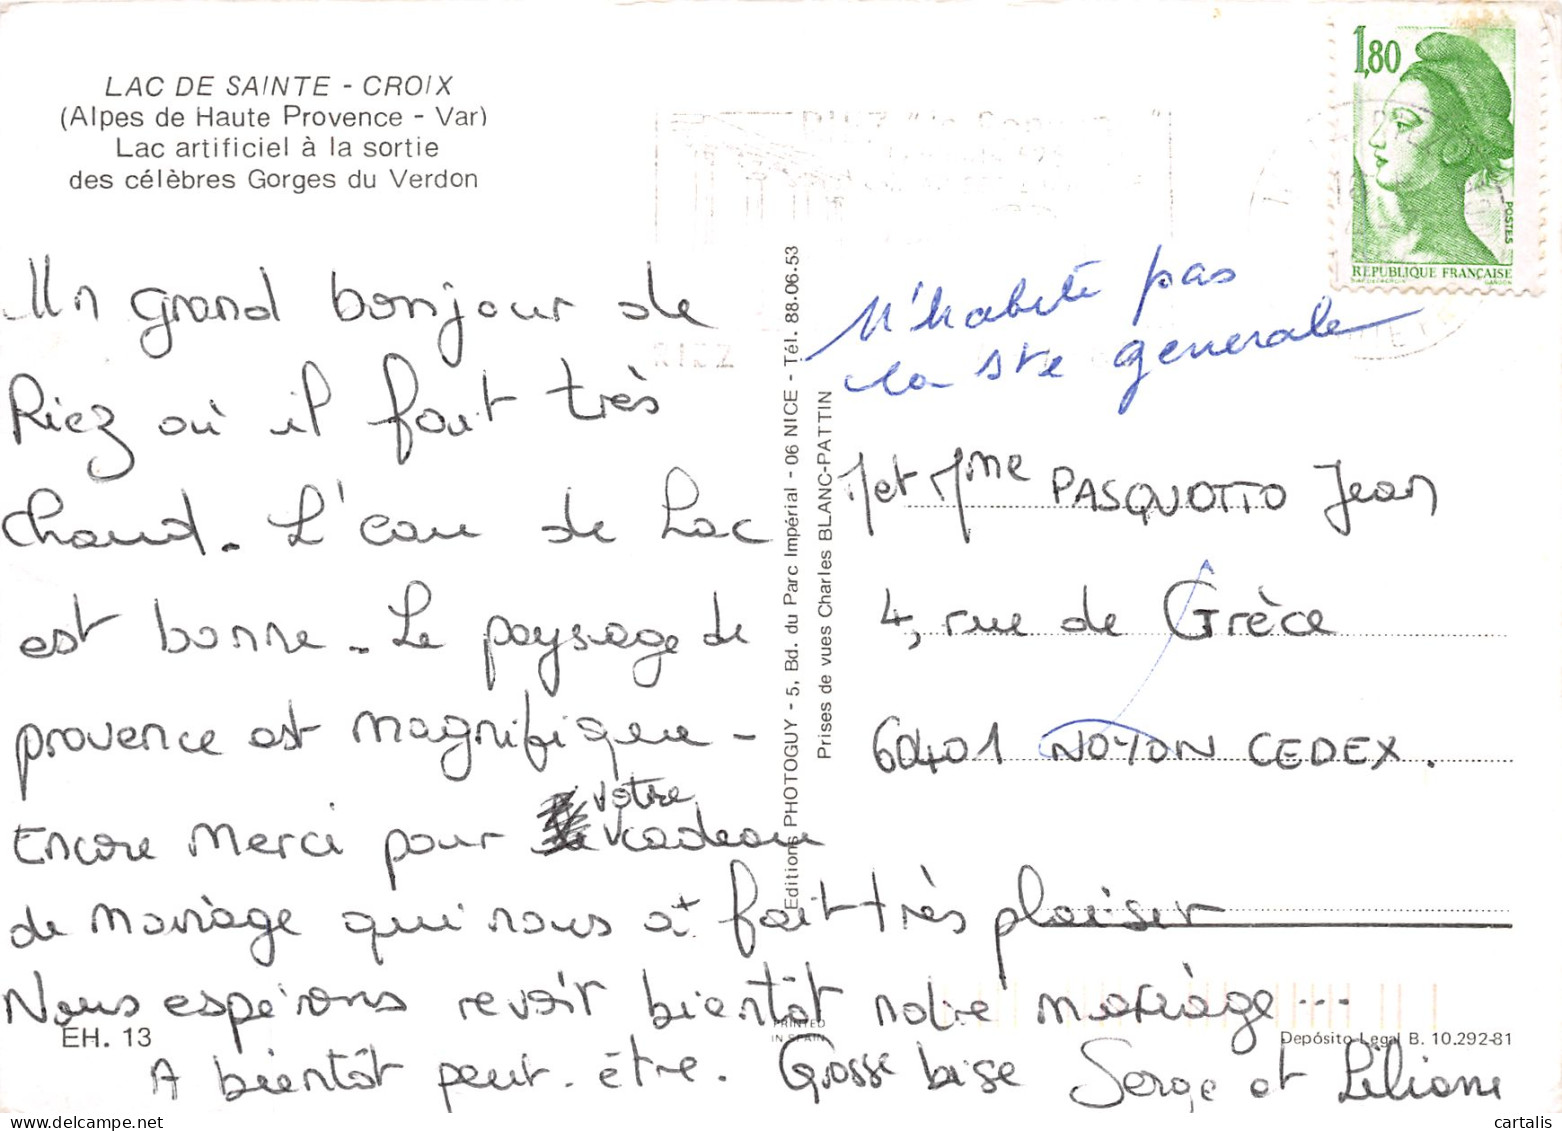 LAC DE SAINTE - CROIX
(Alpes de Haute Provence - Var)
Lac artificiel à la sortie
des célèbres Gorges du Verdon
1,80
POSTES
REPUBLIQUE FRANÇAISE
GANDON
RIEZ
Un grand bonjour de
Riez où il fait très
chaud. L'eau de Lac
est bonne. Le paysage de
provence est magnifique -
Encore Merci pour votre cadeau
de mariage qui nous a fait très plaisir
Nous espérons revoir bientôt notre mariage...
A bientôt peut-être. Grosse bise Serge et Liliane
Editions PHOTOGUY - 5, Bd. du Parc Impérial - 06 NICE - Tél. 88.06.53
Prises de vues Charles BLANC-PATTIN
N'habite pas
la Ste generale
M et Mme PASQUOTTO Jean
4, rue de Grèce
60401 NOYON CEDEX.
EH. 13
PRINTED
IN SPAIN
Depósito Legal B. 10.292-81
cartalis